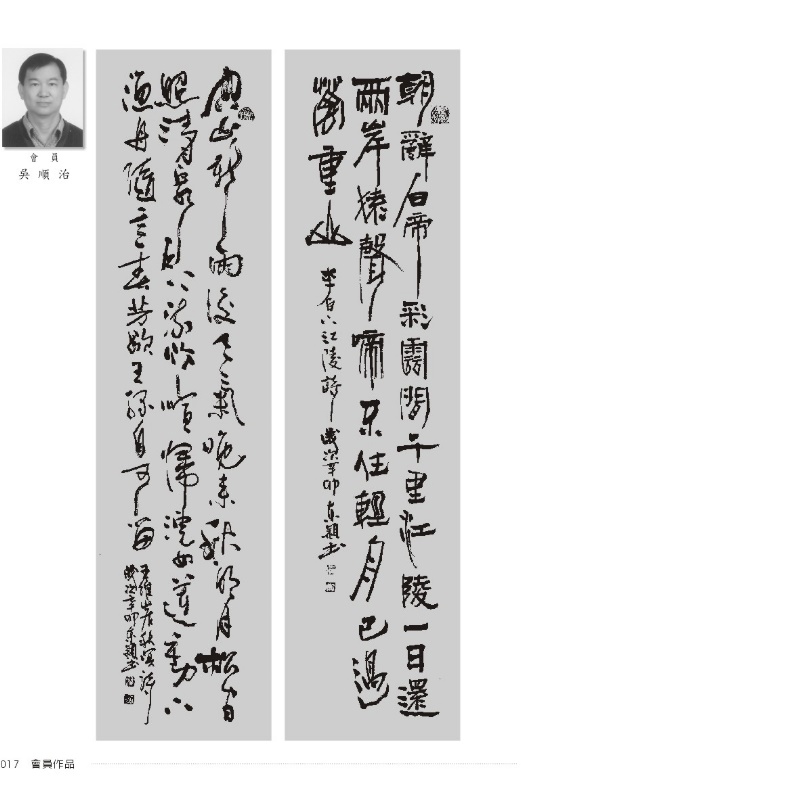 會員
吳順治
朝辭白帝彩雲間千里江陵一日還
兩岸猿聲啼不住輕舟已過
萬重山
李白下江陵詩 歲次辛卯
空山新雨後天氣晚來秋明月松間
照清泉石上流竹喧歸浣女蓮動下
漁舟隨意春芳歇王孫自可留
王維山居秋暝詩
歲次辛卯
017 會員作品